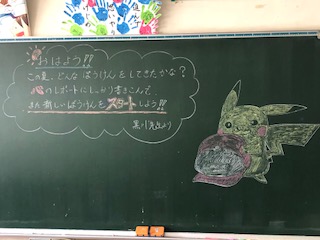 おはよう!!
この夏、どんな ぼうけんをしてきたかな?
心のレポートにしっかり書きこんで、
また新しいぼうけんを スタートしよう!!